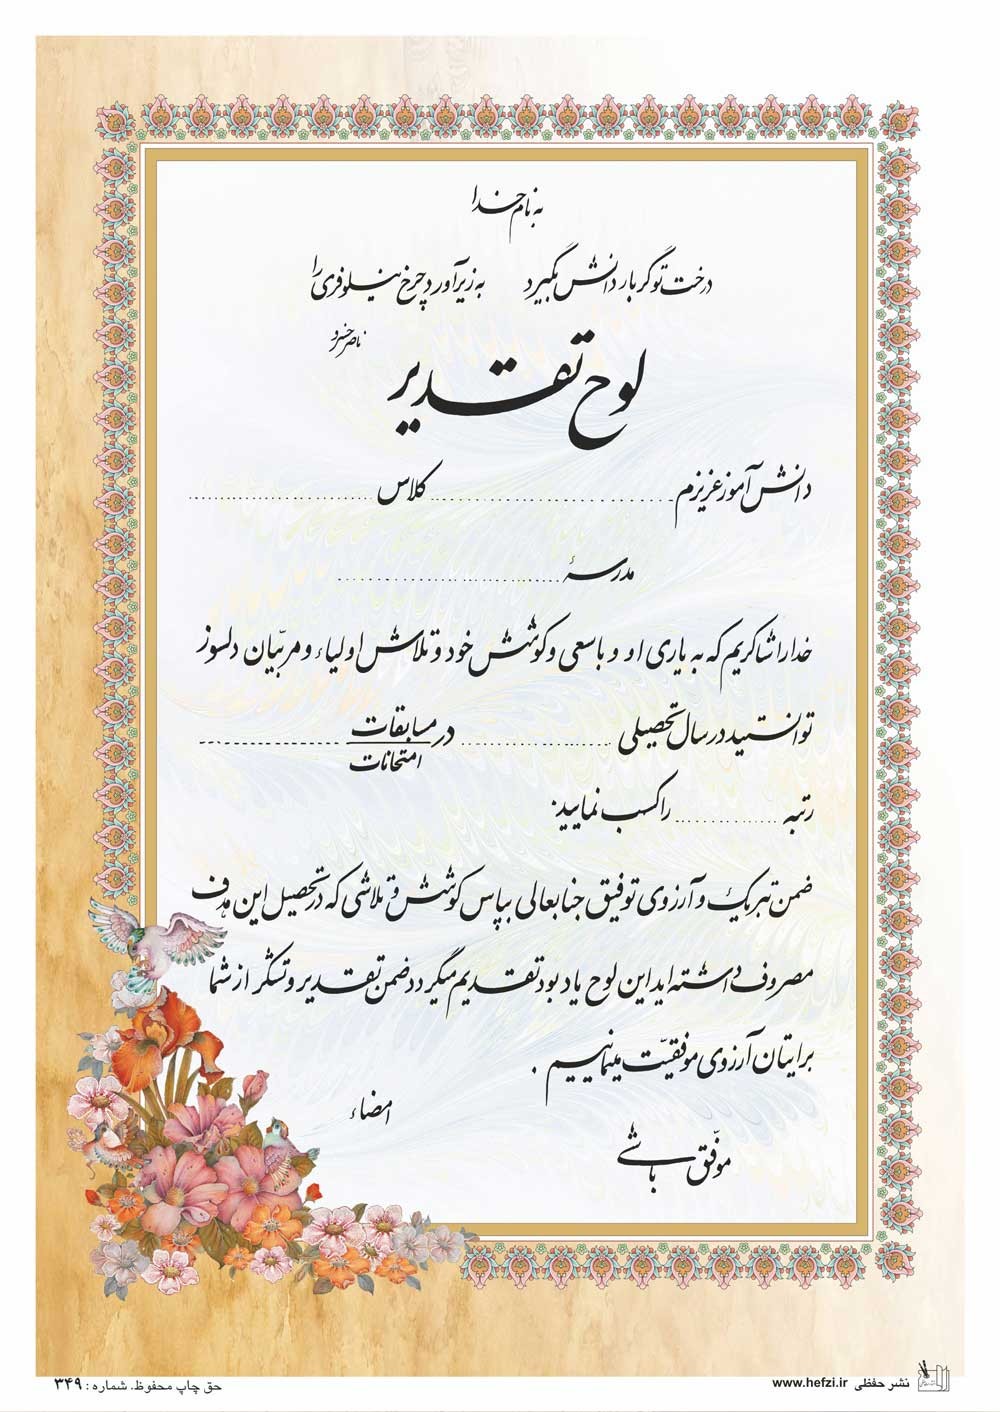 به نام خدا
درخت تو گر بار دانش بگیرد به زیر آورد چرخ نیلوفری را
ناصر خسرو
لوح تقدیر
دانش آموز عزیزم .......................... کلاس ....................
مدرسهٔ ..........................
خدا را شاکریم که به یاری او و با سعی و کوشش خود و تلاش اولیاء و مربّیان دلسوز
توانستید در سال تحصیلی .................. در مسابقات ....................
امتحانات
رتبه .............. را کسب نمایید.
ضمن تبریک و آرزوی توفیق جنابعالی بپاس کوشش و تلاشی که در تحصیل این هدف
مصروف داشته اید این لوح یادبود تقدیم میگردد ضمن تقدیر و تشکر از شما
برایتان آرزوی موفقیّت مینمائیم .
امضاء
موفّق باشی
نشر حفظی www.hefzi.ir
حق چاپ محفوظ. شماره : ۳۴۹